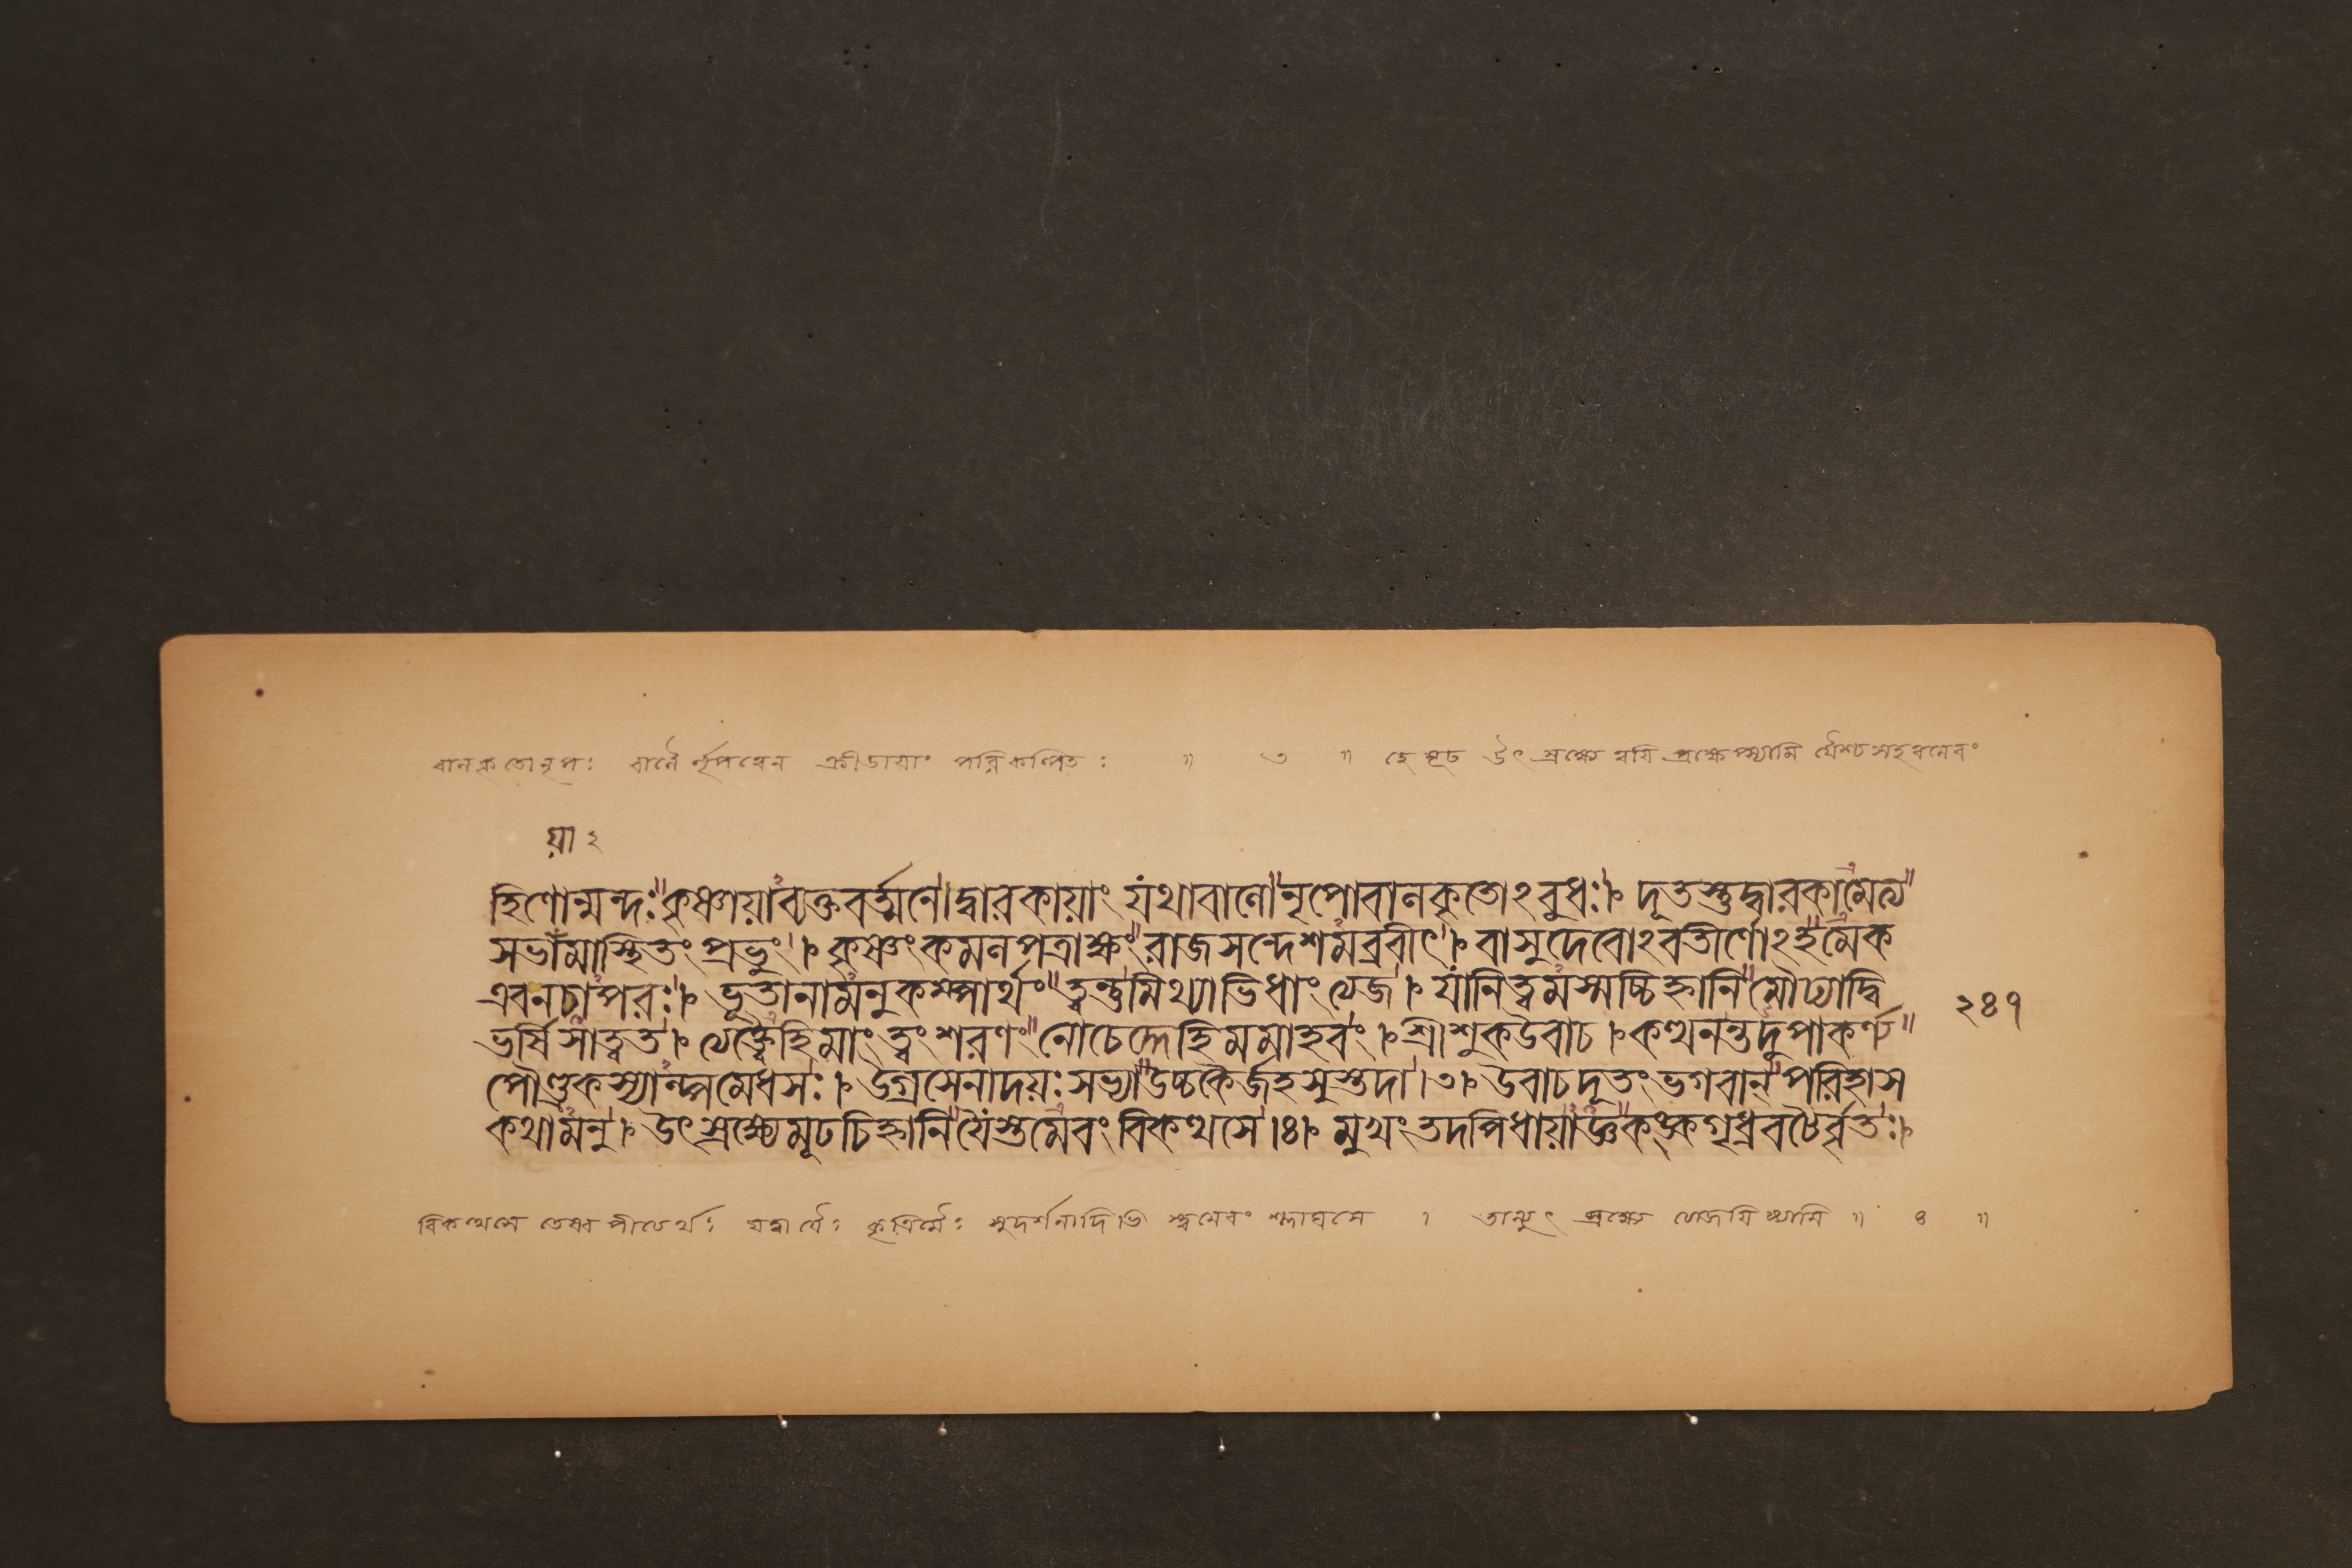 বালকৃতোনৃপঃ বালৈর্নৃপত্বেন ক্রীডায়াং পরিকল্পিতঃ ॥ ৩ ॥ হে মূঢ উৎস্রক্ষ্যে ত্বয়ি প্রক্ষেপ্স্যামি যৈশ্চসহত্বমেবং
য়া ২
হিণোন্মন্দঃ কৃষ্ণায়াব্যক্তবর্ত্মনে। দ্বারকায়াং যথাবালো নৃপোবালকৃতোঽবুধঃ। দূতস্তুদ্বারকামেত্য
সভামাস্থিতং প্রভুং। কৃষ্ণংকমলপত্রাক্ষং রাজসন্দেশমব্রবীৎ। বাসুদেবোঽবতীর্ণোঽহমেক
এবনচাপরঃ। ভূতানামনুকম্পার্থং ত্বন্তুমিথ্যাভিধাংত্যজ। যানিত্বমস্মচ্চিহ্নানি মৌঢ্যাদ্বি
ভর্ষি সাত্বত। ত্যক্ত্বৈহিমাং ত্বং শরণং নোচেদ্দেহিমমাহবং। শ্রীশুকউবাচ। কত্থনন্তদুপাকর্ণ্য
পৌণ্ড্রকস্যাল্পমেধসঃ। উগ্রসেনাদয়ঃ সভ্যা উচ্চকৈর্জহসুস্তদা।৩। উবাচদূতং ভগবান্ পরিহাস
কথামনু। উৎস্রক্ষ্যেমূঢচিহ্নানি যৈস্ত্বমেবং বিকত্থসে।৪। মুখং তদপিধায়াজ্ঞ কঙ্কগৃধ্রবটৈর্বৃতঃ।
২৪৭
বিকত্থসে তেষামপীত্যর্থঃ যদ্বা যৈঃ কৃত্রিমৈঃ সুদর্শনাদিভি স্ত্বমেবং শ্লাঘসে । তান্যুৎস্রক্ষ্যে ত্যাজয়িষ্যামি ॥ ৪ ॥